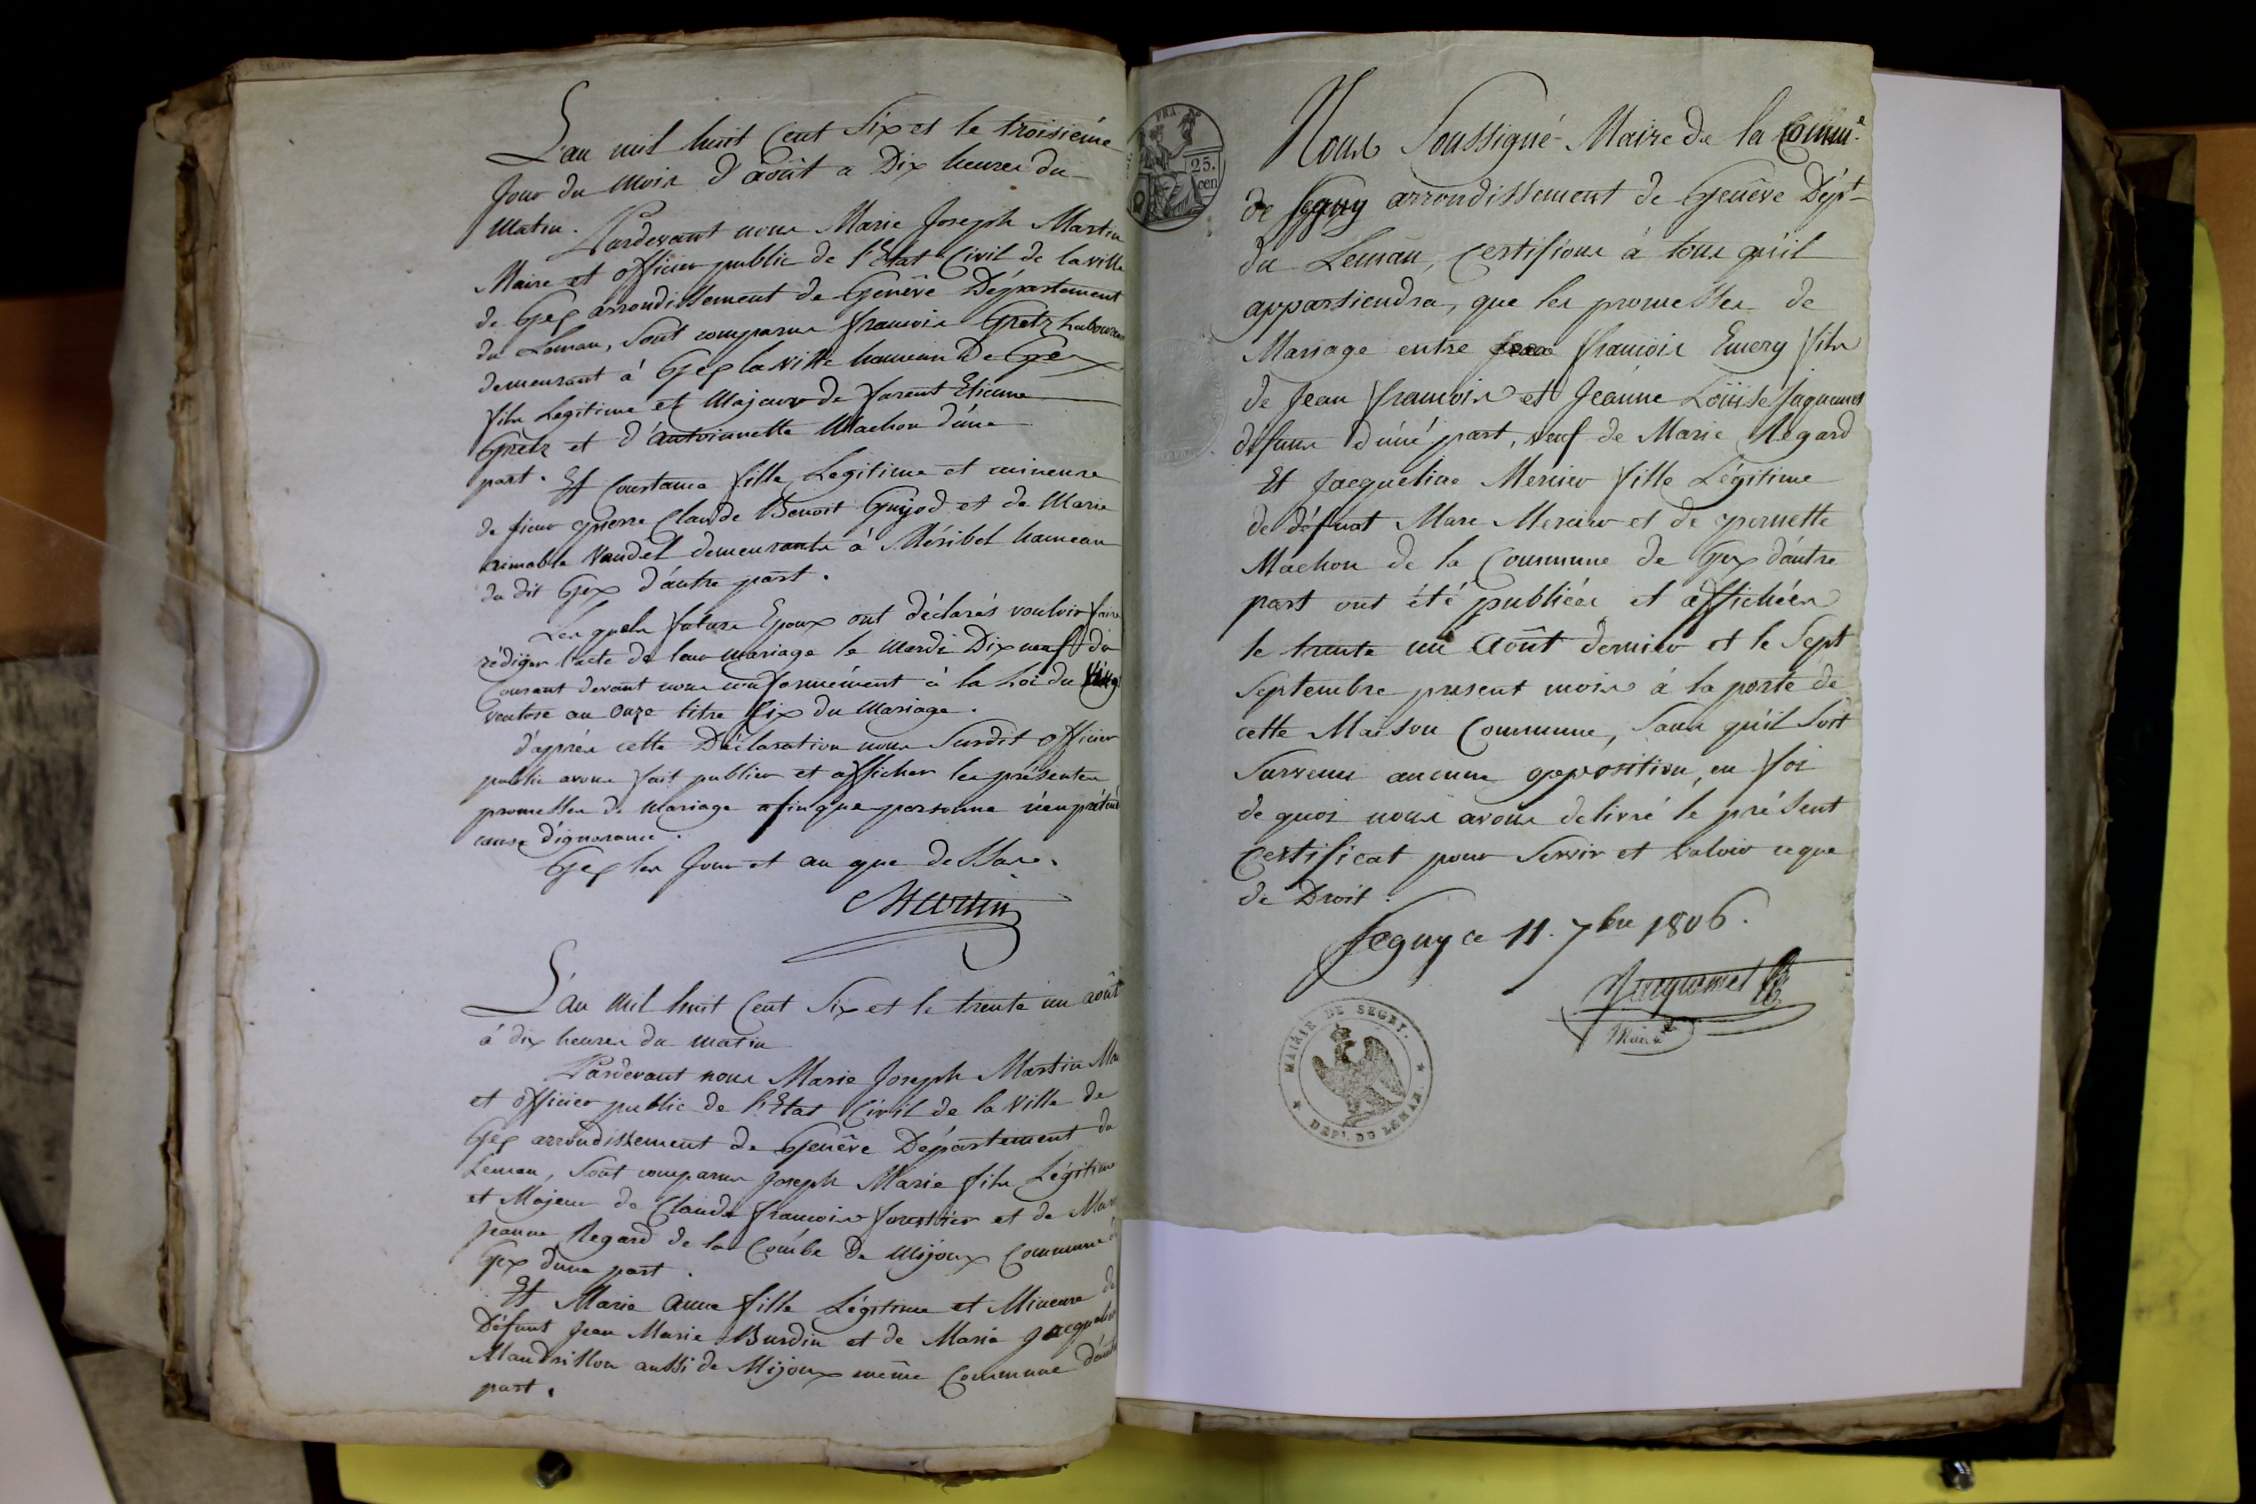 L'an mil huit Cent Six et le troisième
Jour du Mois d'août a Dix heures du
Matin.
Pardevant nous Marie Joseph Martin
Maire et officier public de l'Etat Civil de la ville
de Gex arrondissement de Genêve Département
du Leman, Sont comparus francois Gretz Laboureur
demeurant à Gex la ville hameau De Gex
fils Legitime et Majeur de Etienne
Gretz et d'antoinnette Machon d'une
part. Et Constance fille Legitime et mineure
de sieur pierre Claude Benoit Guyod et de Marie
aimable Vaudel demeurants à Méribel hameau
du dit Gex d'autre part.
Les quels futurs Epoux ont déclarés vouloir faire
rédiger l'acte de leur mariage le Mardi Dix neuf du
Courant devant nous conformément à la Loi du Vingt
ventose an onze titre Six du Mariage.
d'après cette Déclaration nous Susdit officier
public avons fait publier et afficher les présentes
promesses de Mariage afin que personne n'en prétend
cause d'ignorance.
Gex les Jour et an que dessus.
Martin
L'an Mil huit Cent Six et le trente un août
à dix heures du matin
Pardevant nous Marie Joseph Martin
et officier public de l'Etat Civil de la Ville de
Gex arrondissement de Genêve Département du
Leman, Sont comparus Joseph Marie fils Légitime
et Majeur de Claude francois et de
Jeanne Regard de la Combe de Mijoux Commune
Gex d'une part.
Et Marie Anne fille Légitime et Mineure de
Défunt Jean Marie Burdin et de Marie
Mandrillon aussi de Mijoux même Commune d'autre
part.
25.
cen
Nous Soussigné Maire de la Comm.e
de Segny arrondissement de Genêve Dépt
du Leman, Certifions à tous qu'il
appartiendra, que les promesses de
Mariage entre francois Emery fils
de Jean francois et Jeanne Loüise Jaquemet
defunts d'une part, veuf de Marie Regard
Et Jacqueline Mercier fille Légitime
de défunt Marc Mercier et de pernette
Machon de la Commune de Gex d'autre
part ont été publiées et affichées
le trente un Août dernier et le Sept
Septembre present mois à la porte de
cette Maison Commune, Sans qu'il Soit
Survenu aucune opposition, en foi
de quoi nous avons delivré le présent
Certificat pour Servir et Valoir ce que
de Droit.
Segny ce 11. 7bre 1806.
Jaquemet
Maire
MAIRIE DE SEGNY.
DEPt. DU LEMAN.